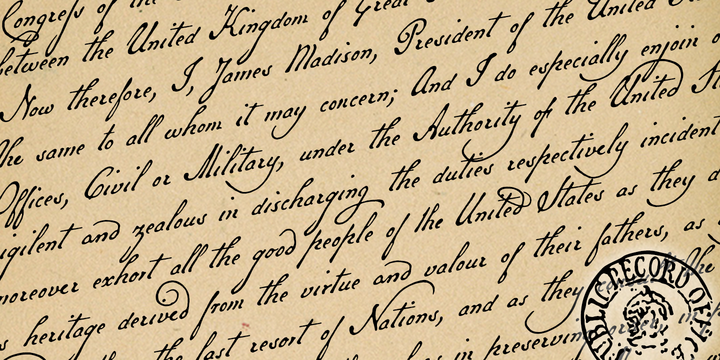 Congreſs of the
between the United Kingdom of Great
Now therefore, I, James Madison, President of the United
the same to all whom it may concern; And I do especially enjoin
Offices, Civil or Military, under the Authority of the United
vigilent and zealous in discharging the duties respectively incident
moreover exhort all the good people of the United States as they
heritage derived from the virtue and valour of their fathers, as
the last resort of Nations, and as they
in preserving
PUBLIC RECORD OF